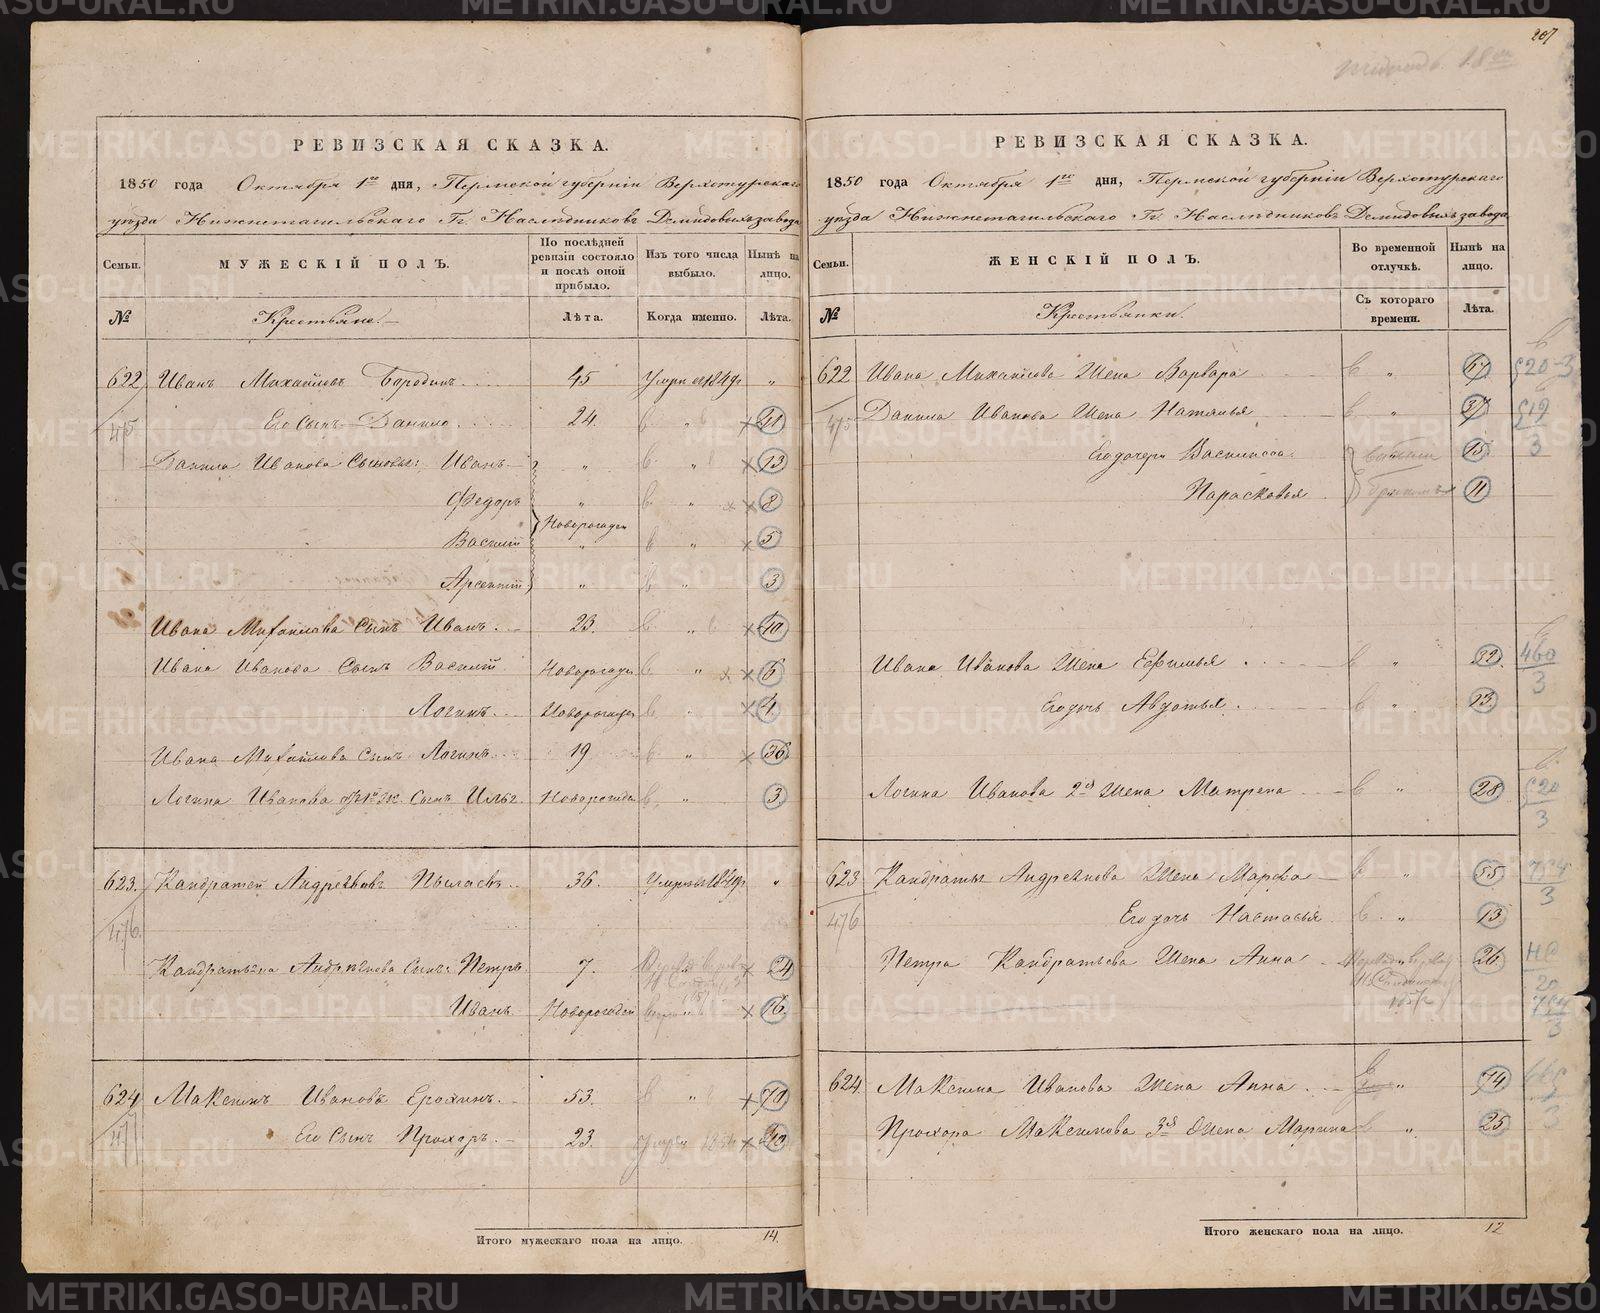 РЕВИЗСКАЯ СКАЗКА.
1850 года Октября 1го дня, Пермской губернiи Верхотурскаго
уѣзда Нижнетагильскаго Гг. Наслѣдниковъ Демидовыхъ завода
Семьи.
МУЖЕСКIЙ ПОЛЪ.
По послѣдней ревизiи состояло и послѣ оной прибыло.
Изъ того числа выбыло.
Нынѣ на лицо.
№
Крестьяне.
Лѣта.
Когда именно.
Лѣта.
622 Иванъ Михайловъ Бородинъ 45 Умеръ 1849г "
475 Его Сынъ Данило 24.
Данила Иванова Сыновья: Иванъ " 13
Федоръ " 8
Новорожден
Василiй " 5
Арсентiй " 3
Ивана Михайлова Сынъ Иванъ. 23. 40
Ивана Иванова Сынъ Василiй Новорожден 6
Логинъ. Новорожден 4
Ивана Михайлова Сынъ Логинъ 19 36
Логина Иванова Сынъ Илья Новорожден 3
623. Кандратей Андреяновъ 36. Умеръ 1849г "
476.
Кандратья Андреянова Сын: Петръ 7. 24
Иванъ Новорожден 16
624 Максимъ Ивановъ Ерохинъ. 53. 70
Его Сынъ Прохоръ. 23. 40
Итого мужескаго пола на лицо. 14.
207
РЕВИЗСКАЯ СКАЗКА.
1850 года Октября 1го дня, Пермской губернiи Верхотурскаго
уѣзда Нижнетагильскаго Гг. Наслѣдниковъ Демидовыхъ завода
Семьи.
ЖЕНСКIЙ ПОЛЪ.
Во временной отлучкѣ.
Нынѣ на лицо.
№
Крестьянки.
Съ котораго времени.
Лѣта.
622 Ивана Михайлова Жена Варвара " 67
475 Данила Иванова Жена Наталья " 37
Его дочери Василиса 15
Парасковья 11
Ивана Иванова Жена Ефимья " 32.
Его дочь Авдотья " 13.
Логина Иванова 2я Жена Матрена " 28
623 Кандратья Андреянова Жена Марфа " 55
476 Его дочь Настасья " 13
Петра Кандратьева Жена Анна 26.
624. Максима Иванова Жена Анна " 74
Прохора Максимова 3я Жена Марина " 25
Итого женскаго пола на лицо. 12
METRIKI.GASO-URAL.RU